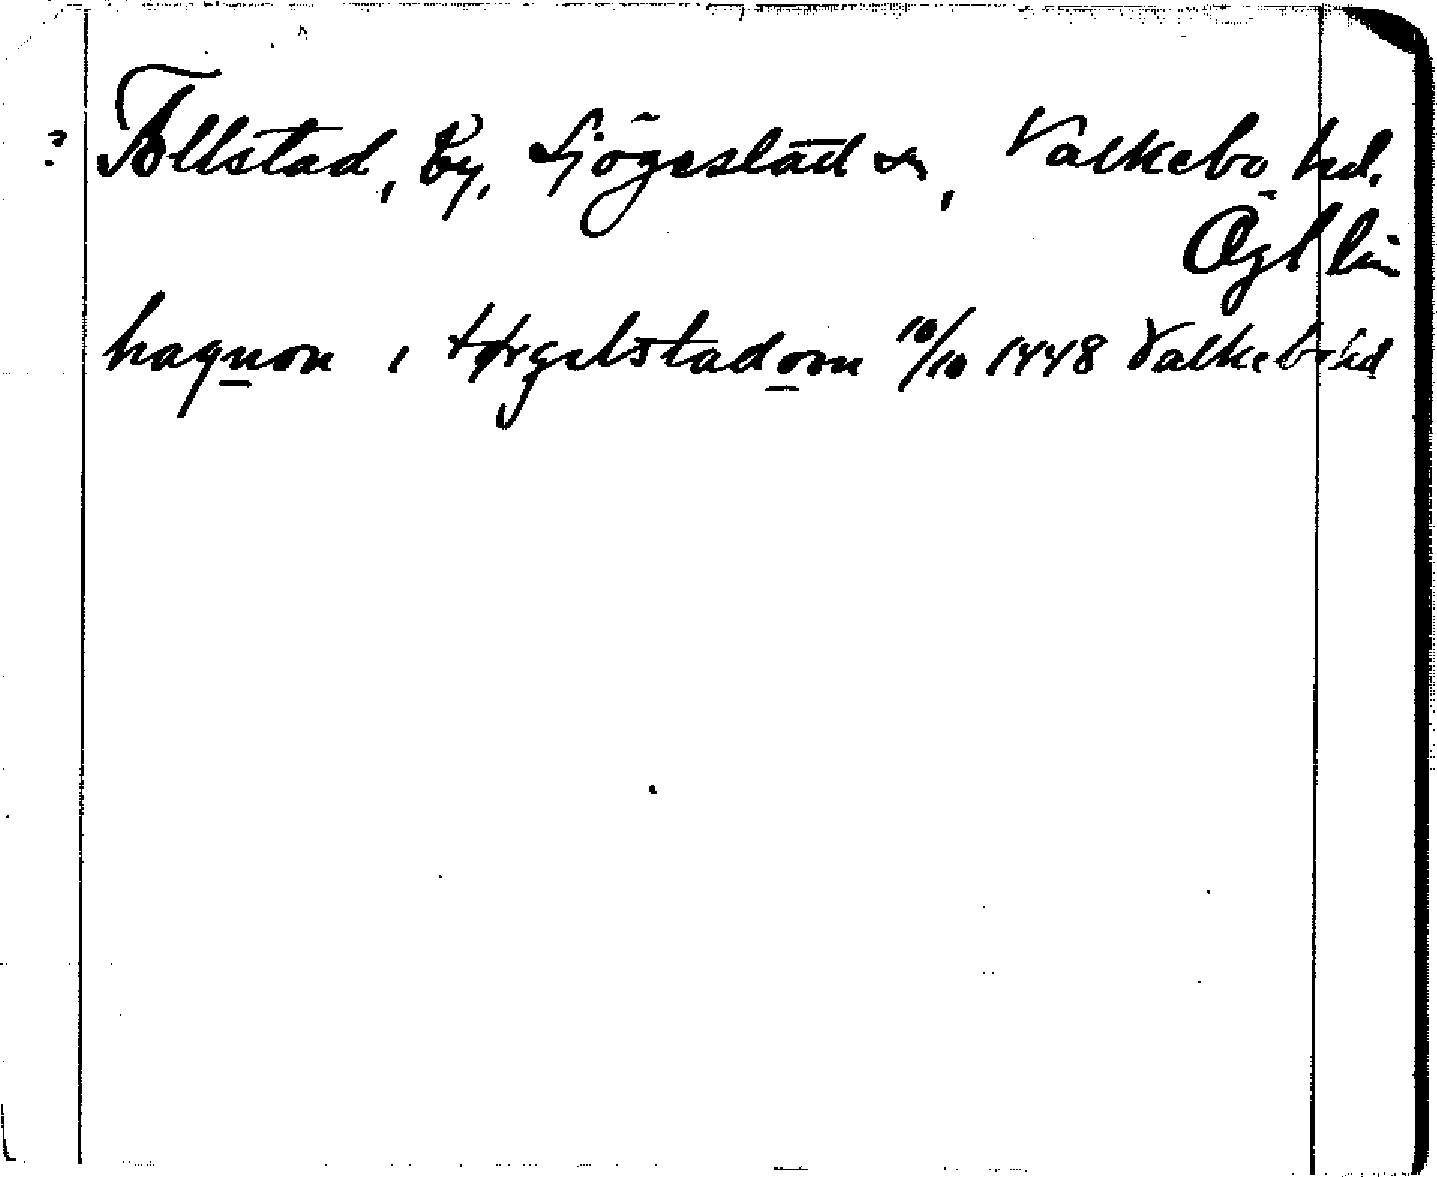 ? Tollstad, by, Sjögestad sn, Valkebo hd.
Ögl län
haqwon i thorgelstadom 10/10 1448 Valkebo hd